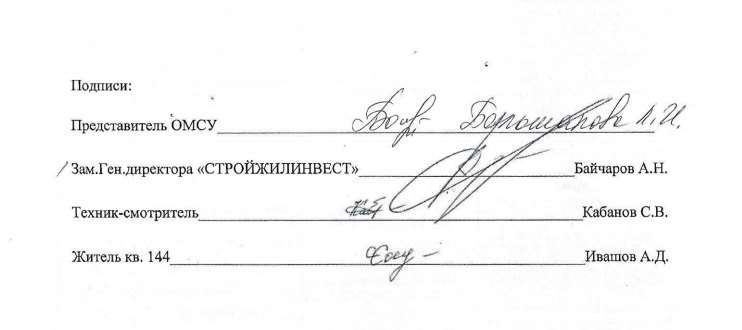 Подписи:
Представитель ОМСУ Л.И.
Зам.Ген.директора «СТРОЙЖИЛИНВЕСТ» Байчаров А.Н.
Техник-смотритель Кабанов С.В.
Житель кв. 144 Ивашов А.Д.